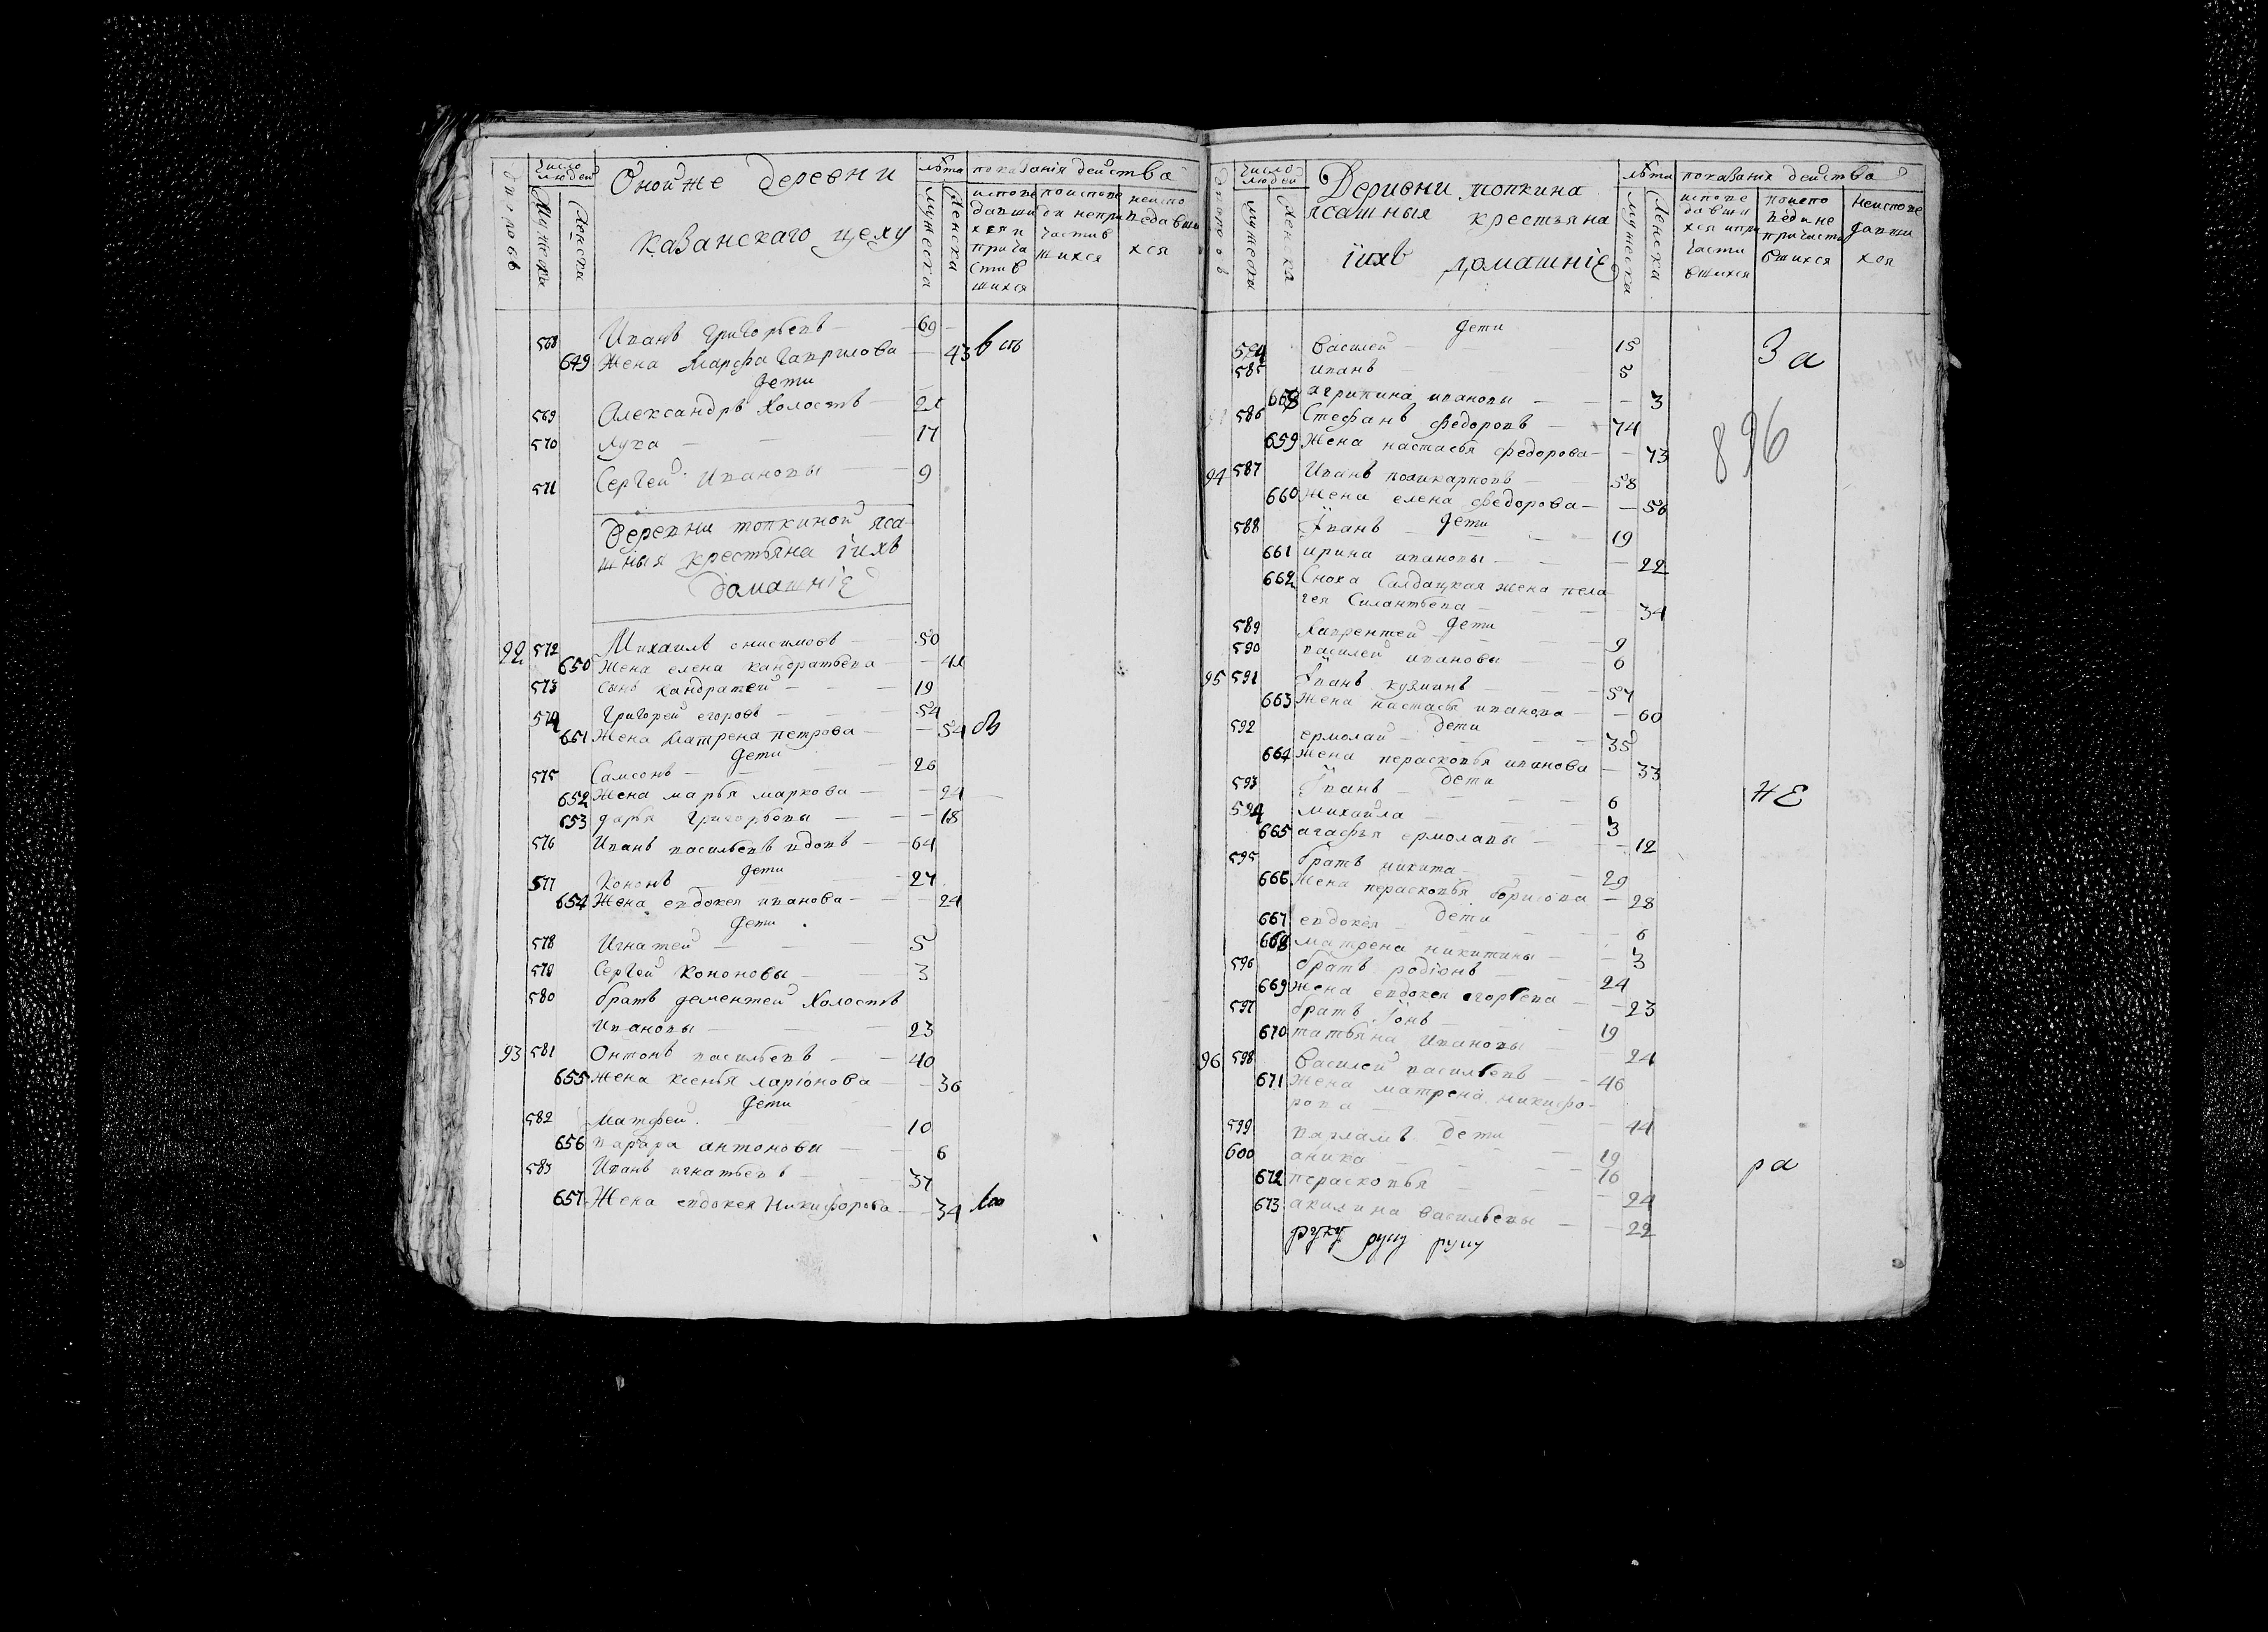 дворовъ
число людей
Мужеска
Женска
Оной же деревни
казанскаго цеху
лѣта
мужеска
женска
показанія действа
568 Иванъ Григорьевъ — 69
649 Жена Марѳа Гаврилова — 43
дети
569 Александръ холостъ — 21
570 Лука — 17
571 Сергей Ивановы — 9
Деревни топкиной яса
шныя крестьяна їихъ
домашнїе
92 572 Михаилъ онисимовъ — 50
650 Жена елена кандратьева — 41
573 сынъ кандратей — 19
574 Григорей егоровъ — 54
651 Жена Матрена петрова — 54
дети
575 Самсонъ — 26
652 Жена марья маркова — 24
653 дарья Григорьевы — 18
576 Иванъ васильевъ вдовъ — 64
дети
577 Кононъ — 27
654 Жена евдокея иванова — 24
дети
578 Игнатей — 5
579 Сергей Кононовы — 3
580 братъ дементей холостъ
Ивановы — 23
93 581 Онтонъ васильевъ — 40
655 Жена ксенья ларїонова — 36
дети
582 Матфей — 10
656 варвара антоновы — 6
583 Иванъ игнатьевъ — 37
657 Жена евдокея Никифорова — 34
число людей
мужеска
женска
Деривни топкина
ясашныя крестьяна
їихъ домашнїе
лѣта
мужеска
женска
показанія действа
дети
584 Василей — 15
585 иванъ — 5
658 агрипина ивановы — 3
За
586 Стефанъ федоровъ — 74
659 Жена настасья федорова — 73
896
94 587 Иванъ поликарповъ — 58
660 Жена елена федорова — 56
дети
588 Їванъ — 19
661 ирина ивановы — 22
662 Сноха Салдацкая жена пела
гея Силантьева — 34
дети
589 Лаврентей — 9
590 василей ивановы — 6
95 591 Їванъ кузминъ — 57
663 Жена настасья иванова — 60
дети
592 ермолай — 35
664 Жена перасковья иванова — 33
дети
593 Їванъ — 6
не
594 михайла — 3
665 агафья ермолавы — 12
595 братъ никита — 29
666 Жена перасковья борисова — 28
дети
667 евдокея — 6
668 матрена никитины — 3
596 братъ родїонъ — 24
669 Жена евдокея егорьева — 23
597 братъ їонъ — 19
670 татьяна Ивановы — 24
96 598 Василей васильевъ — 46
671 Жена матрена никифо-
рова — 44
дети
599 варламъ — 19
600 аника — 16
ра
672 перасковья — 24
673 акилина васильевы — 22
руку